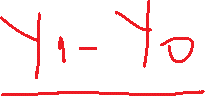 y₁ - y₀